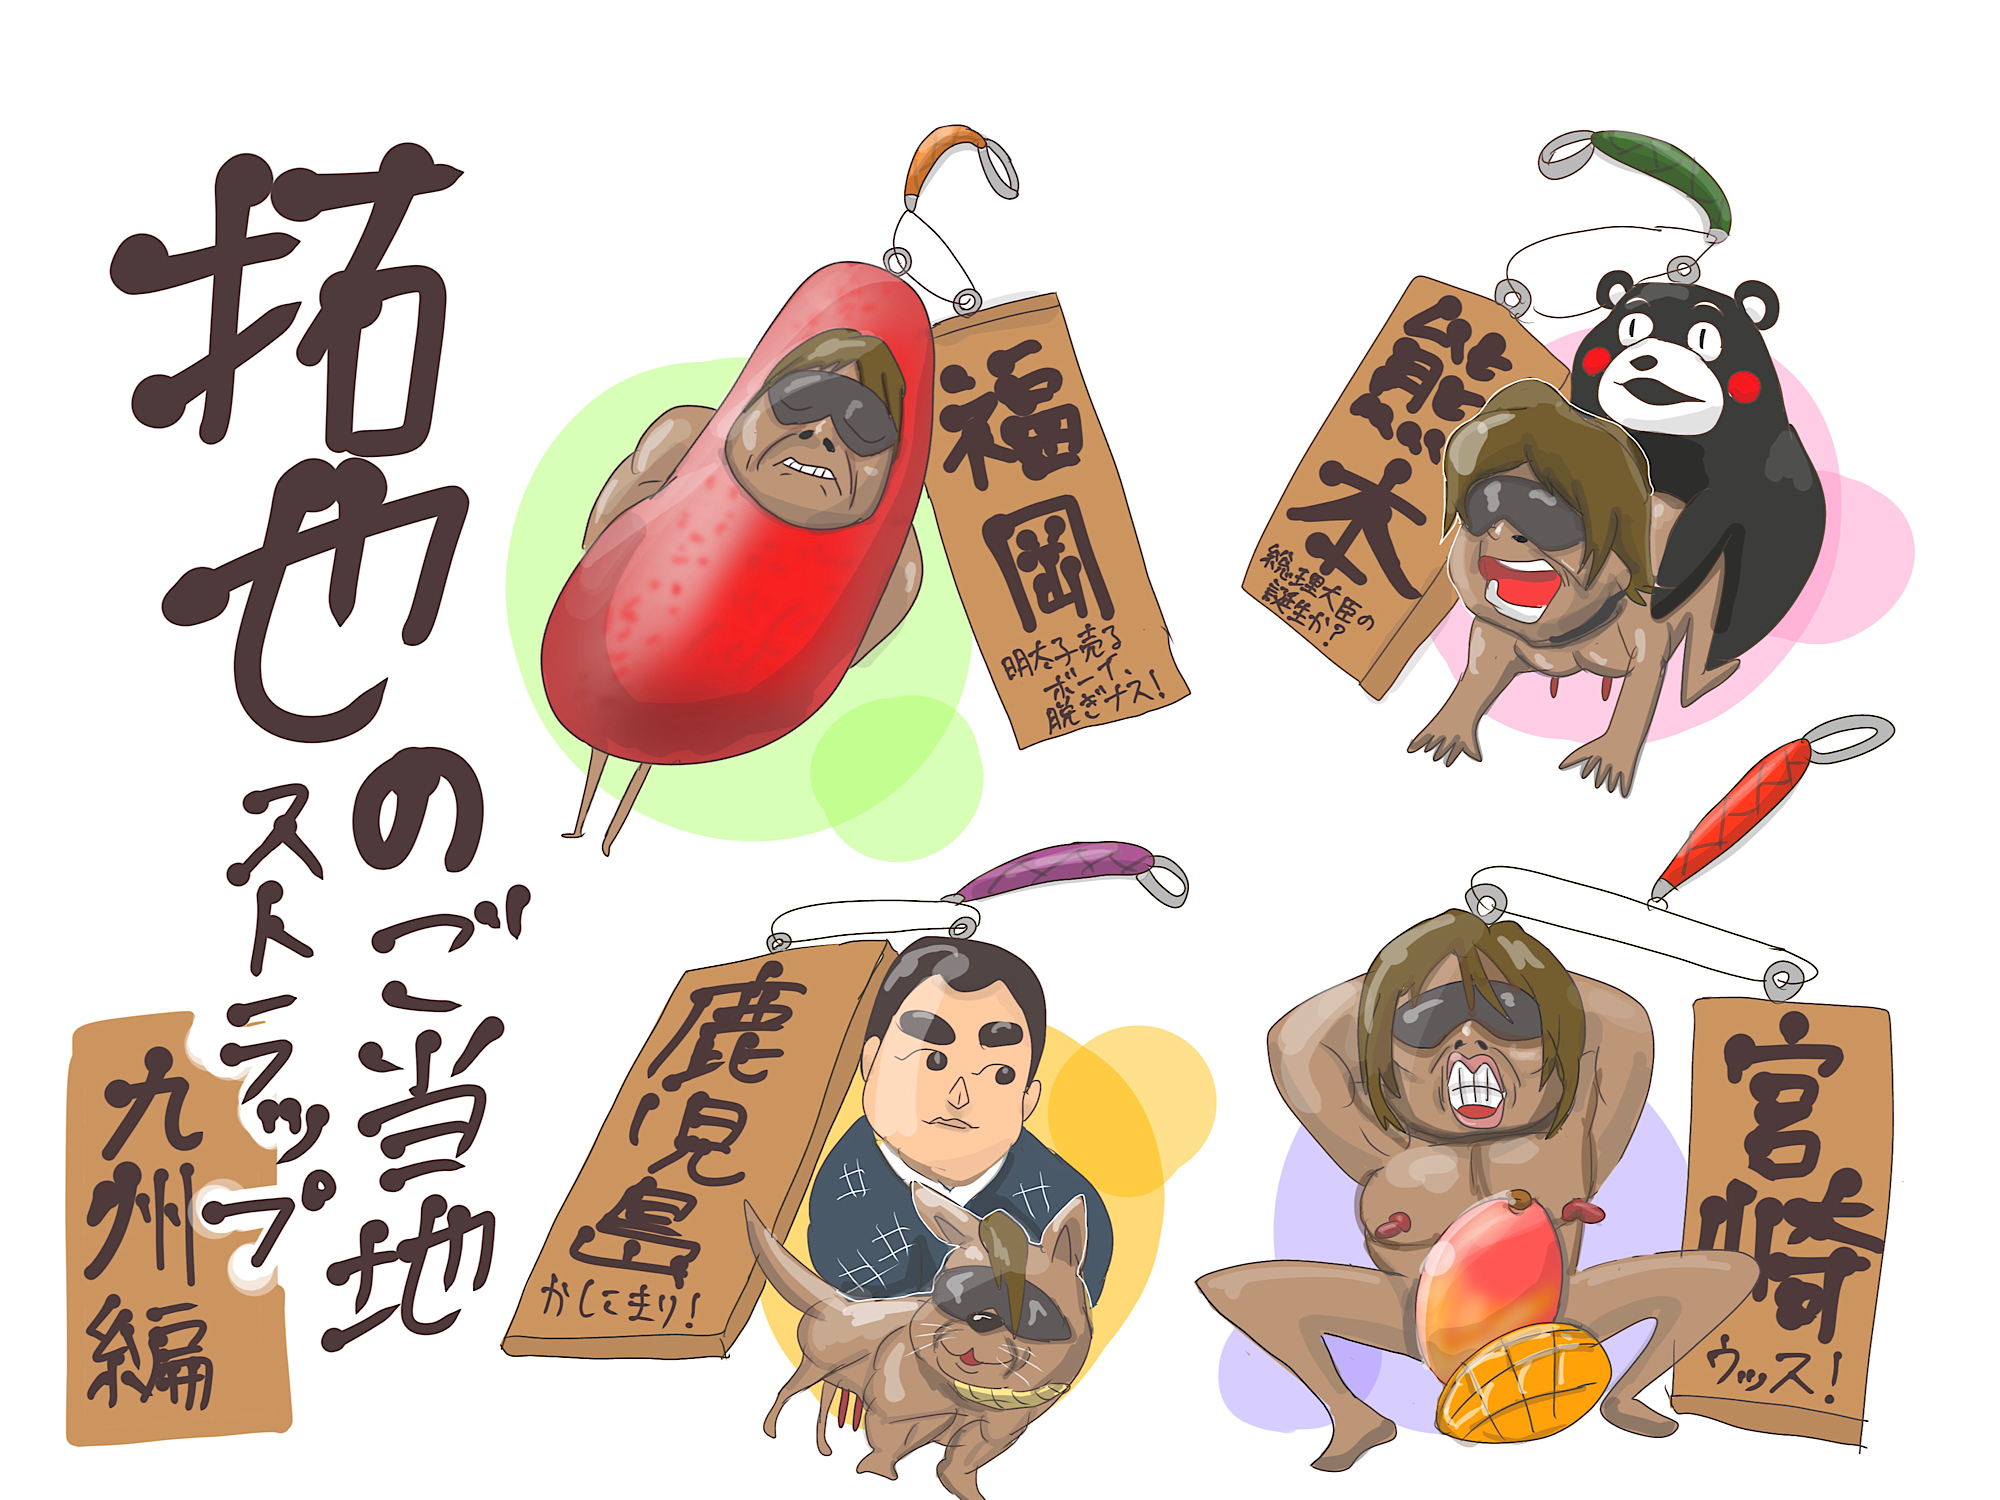 拓也の
ご当地
ストラップ
九州編
福岡
明太子売る
ボーイ、
脱ぎナス!
熊本
総理大臣の
誕生か?
鹿児島
かしこまり!
宮崎
ウッス!